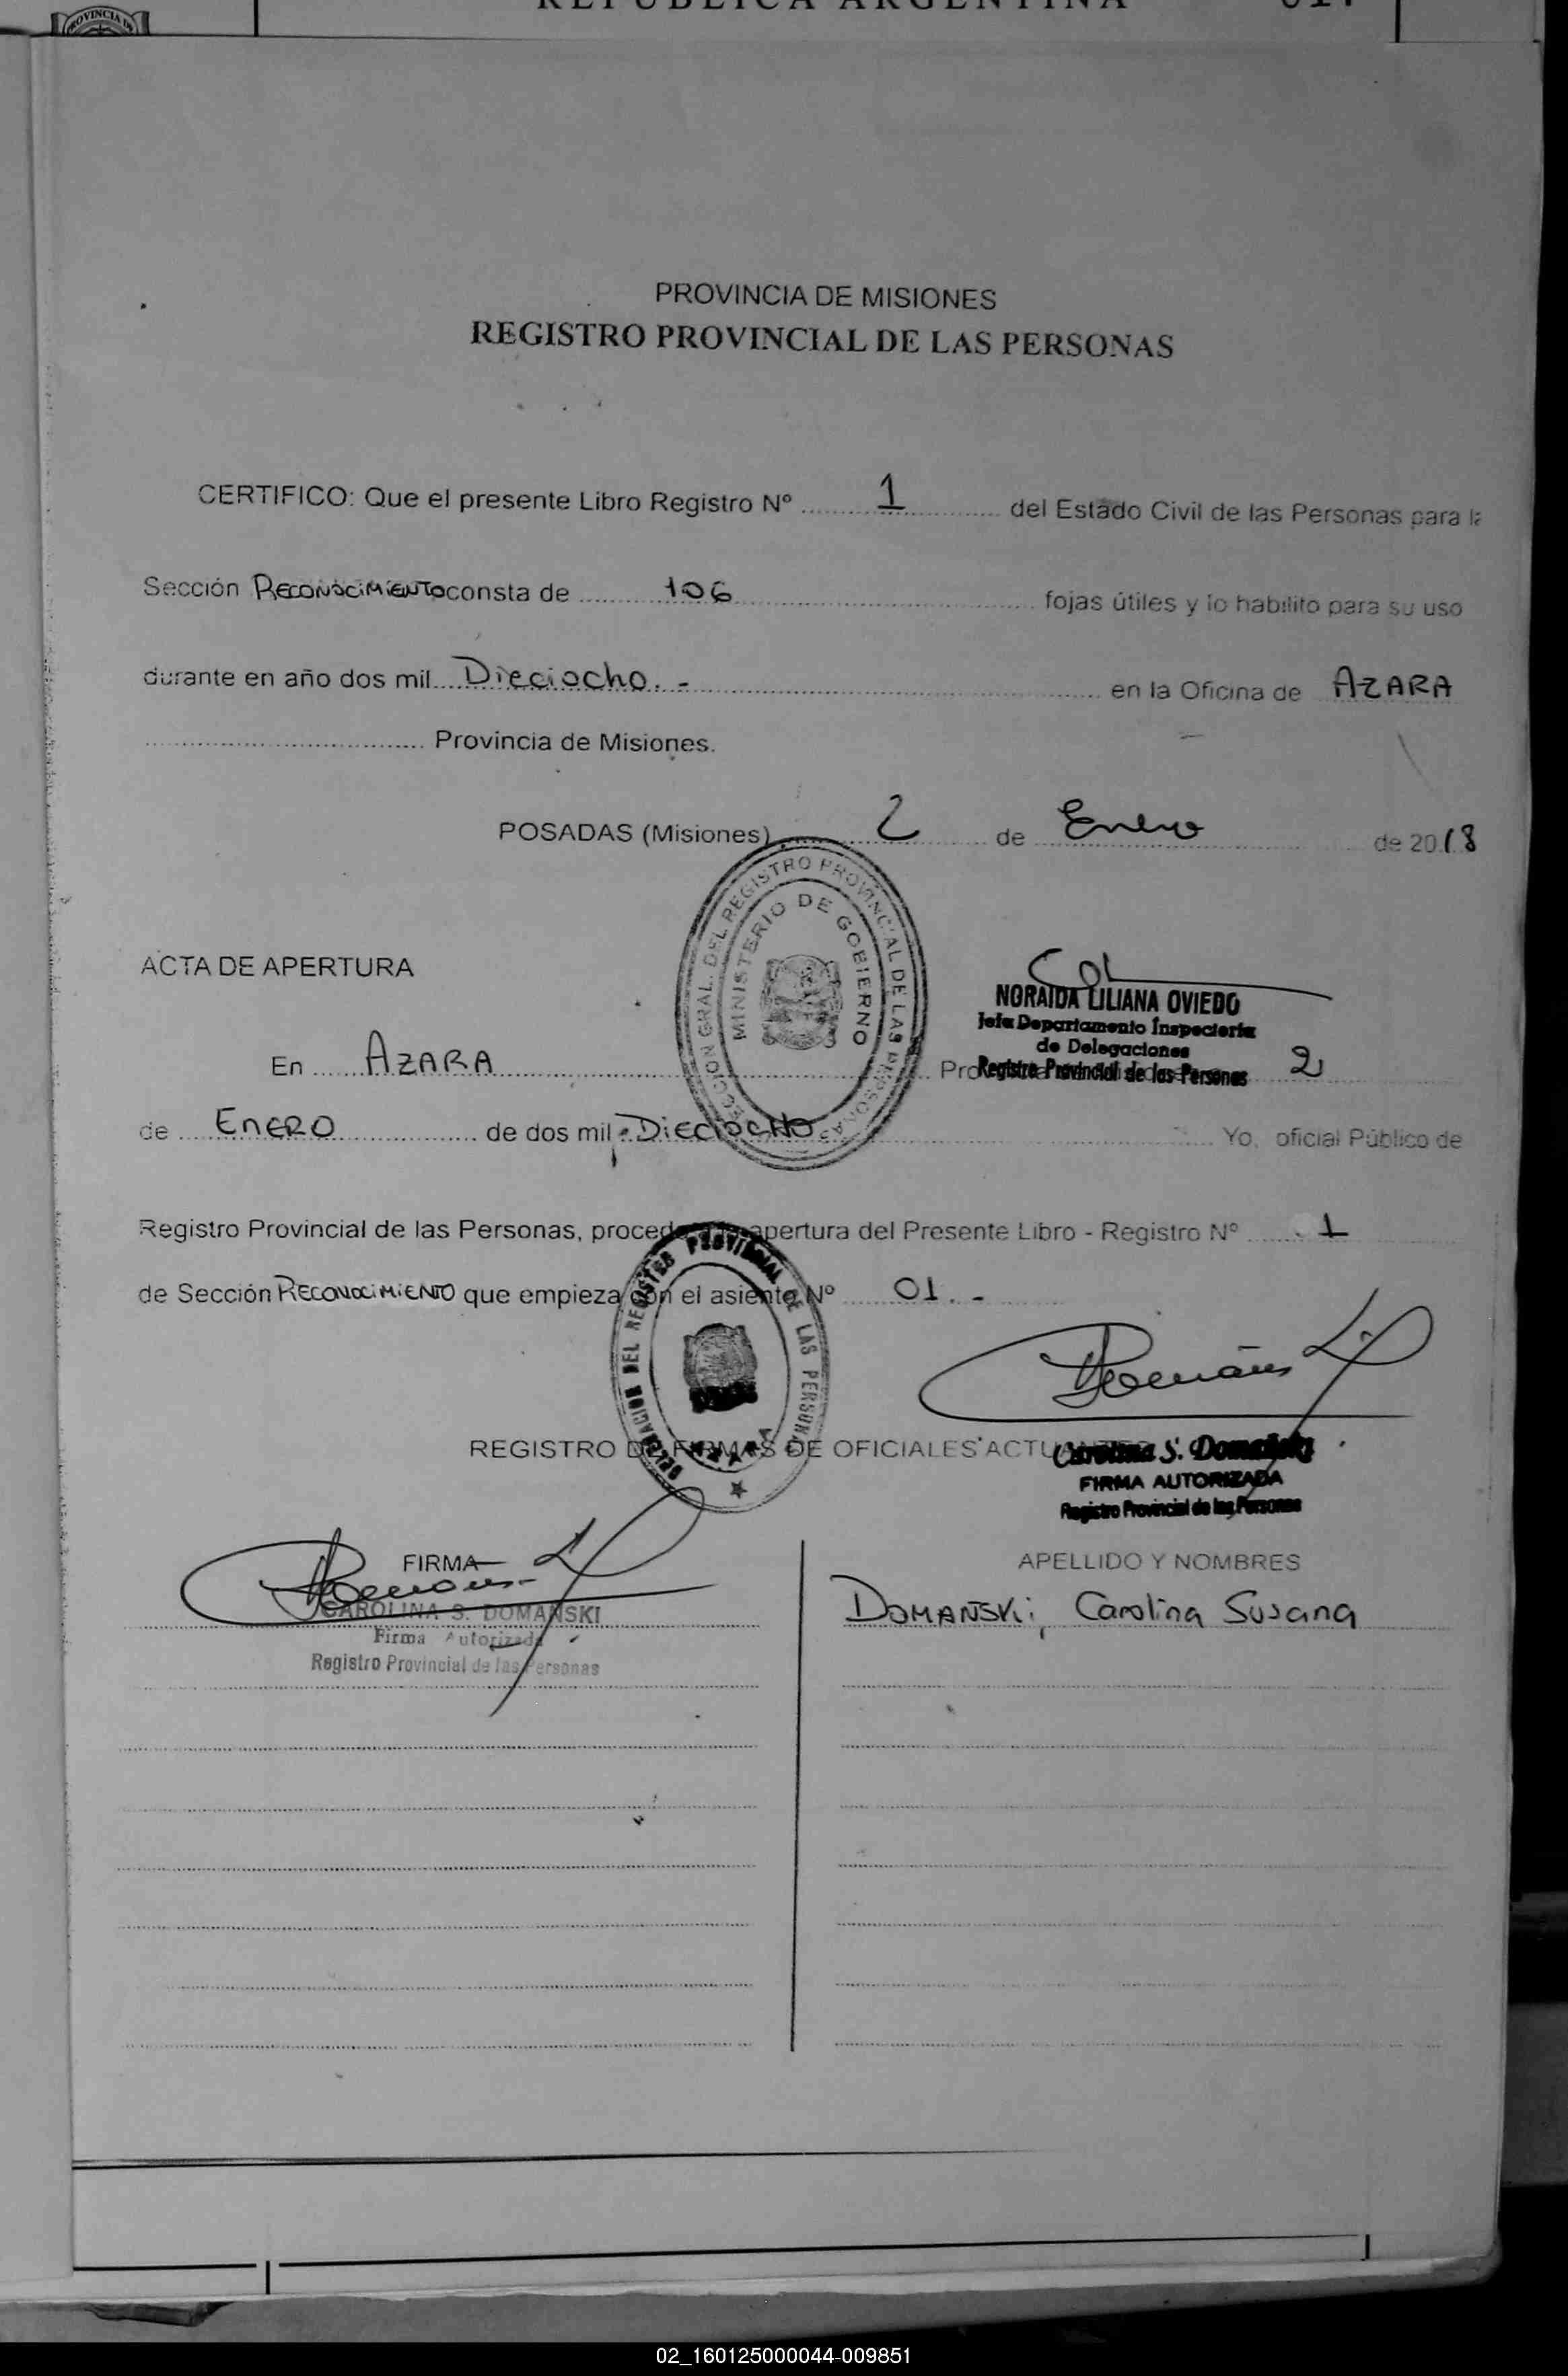 PROVINCIA DE
REPUBLICA ARGENTINA
PROVINCIA DE MISIONES
REGISTRO PROVINCIAL DE LAS PERSONAS
CERTIFICO: Que el presente Libro Registro Nº 1 del Estado Civil de las Personas para la
Sección RECONOCIMIENTO consta de 106 fojas útiles y lo habilito para su uso
durante en año dos mil Dieciocho. - en la Oficina de AZARA
Provincia de Misiones.
POSADAS (Misiones) 2 de Enero de 2018
REGISTRO PROVINCIAL DE LAS PERSONAS
MINISTERIO DE GOBIERNO
ACTA DE APERTURA
NORAIDA LILIANA OVIEDO
Jefa Departamento Inspectoría
de Delegaciones
Registro Provincial de las Personas
En AZARA 2
de ENERO de dos mil DIECIOCHO Yo, oficial Público de
Registro Provincial de las Personas, apertura del Presente Libro - Registro Nº 1
de Sección RECONOCIMIENTO que empieza con el asiento Nº 01. -
DELEGACION DEL REGISTRO PROVINCIAL DE LAS PERSONAS
REGISTRO DE FIRMAS DE OFICIALES
Carolina S. Domañski
FIRMA AUTORIZADA
Registro Provincial de las Personas
FIRMA
APELLIDO Y NOMBRES
CAROLINA S. DOMAÑSKI
DOMAÑSKI, Carolina Susana
Firma Autorizada
Registro Provincial de las Personas
02_160125000044-009851